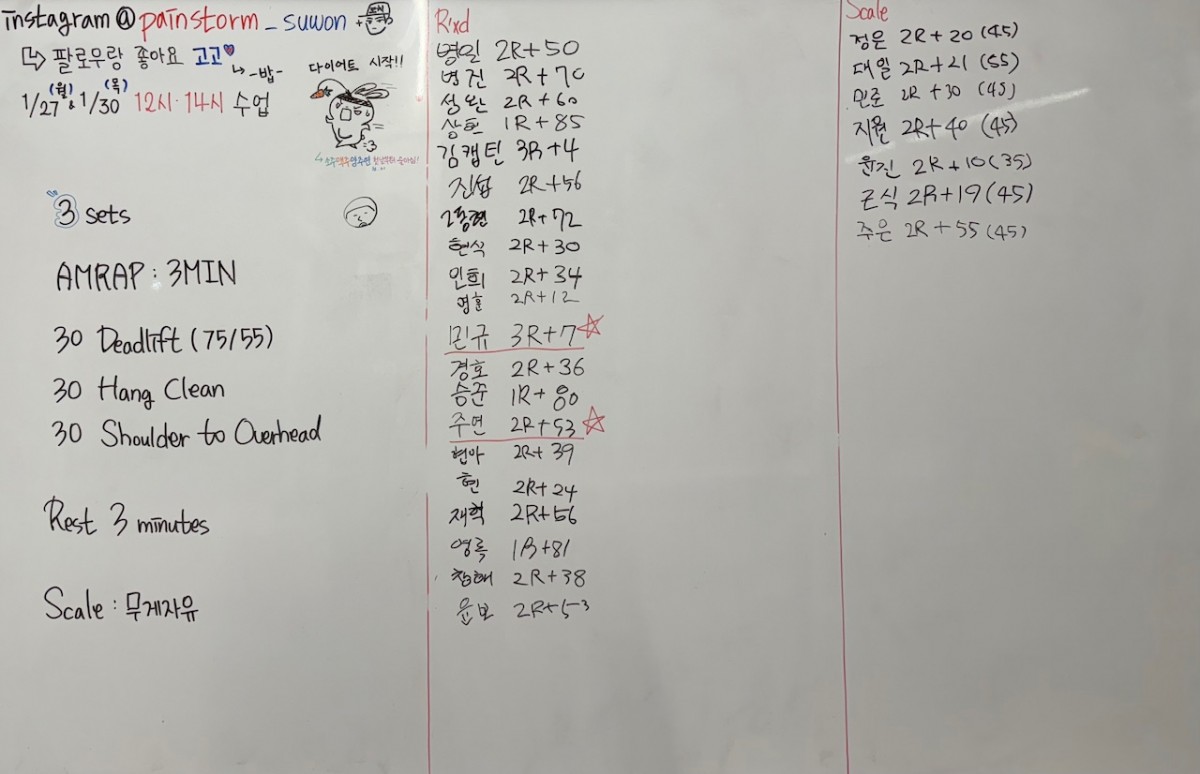 instagram @painstorm_suwon +
↳ 팔로우랑 좋아요 고고♥
↳ -밥-
(월) (목)
1/27 & 1/30 12시·14시 수업
다이어트 시작!!
3 sets
AMRAP : 3MIN
30 Deadlift (75/55)
30 Hang Clean
30 Shoulder to Overhead
Rest 3 minutes
Scale : 무게자유
R'xd
병일 2R+50
병진 2R+70
성완 2R+60
상현 1R+85
김캡틴 3R+4
진섭 2R+56
2R+72
현식 2R+30
인희 2R+34
영훈 2R+12
민규 3R+7☆
경호 2R+36
승준 1R+80
주연 2R+53☆
현아 2R+39
현 2R+24
재혁 2R+56
영록 1R+81
2R+38
윤보 2R+53
Scale
정은 2R+20 (45)
대일 2R+21 (55)
민준 2R+30 (45)
지원 2R+40 (45)
윤진 2R+10 (35)
근식 2R+19 (45)
주은 2R+55 (45)